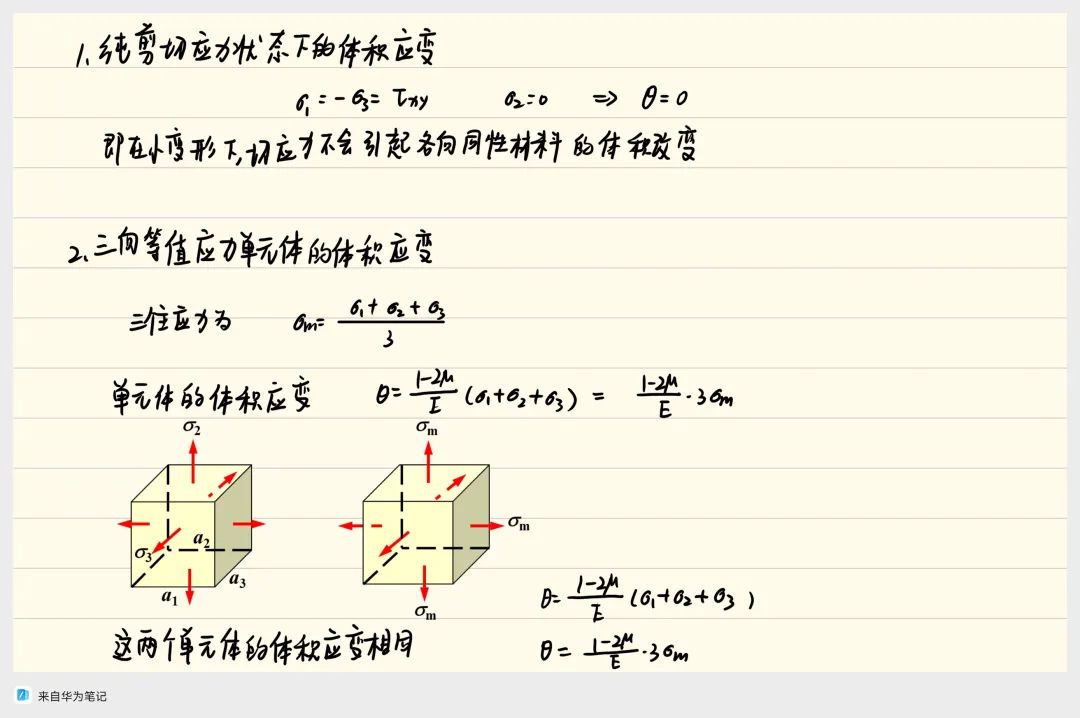 1. 纯剪切应力状态下的体积应变
σ₁ = -σ₃ = τxy   σ₂ = 0   ⇒   θ = 0
即在小变形下,切应力不会引起各向同性材料的体积改变
2. 三向等值应力单元体的体积应变
三个主应力为   σm = (σ₁ + σ₂ + σ₃)/3
单元体的体积应变   θ = (1-2μ)/E (σ₁+σ₂+σ₃) = (1-2μ)/E · 3σm
σ₂   σm
σm
σ₃   a₂
a₃
a₁   σm
θ = (1-2μ)/E (σ₁+σ₂+σ₃)
这两个单元体的体积应变相同   θ = (1-2μ)/E · 3σm
来自华为笔记